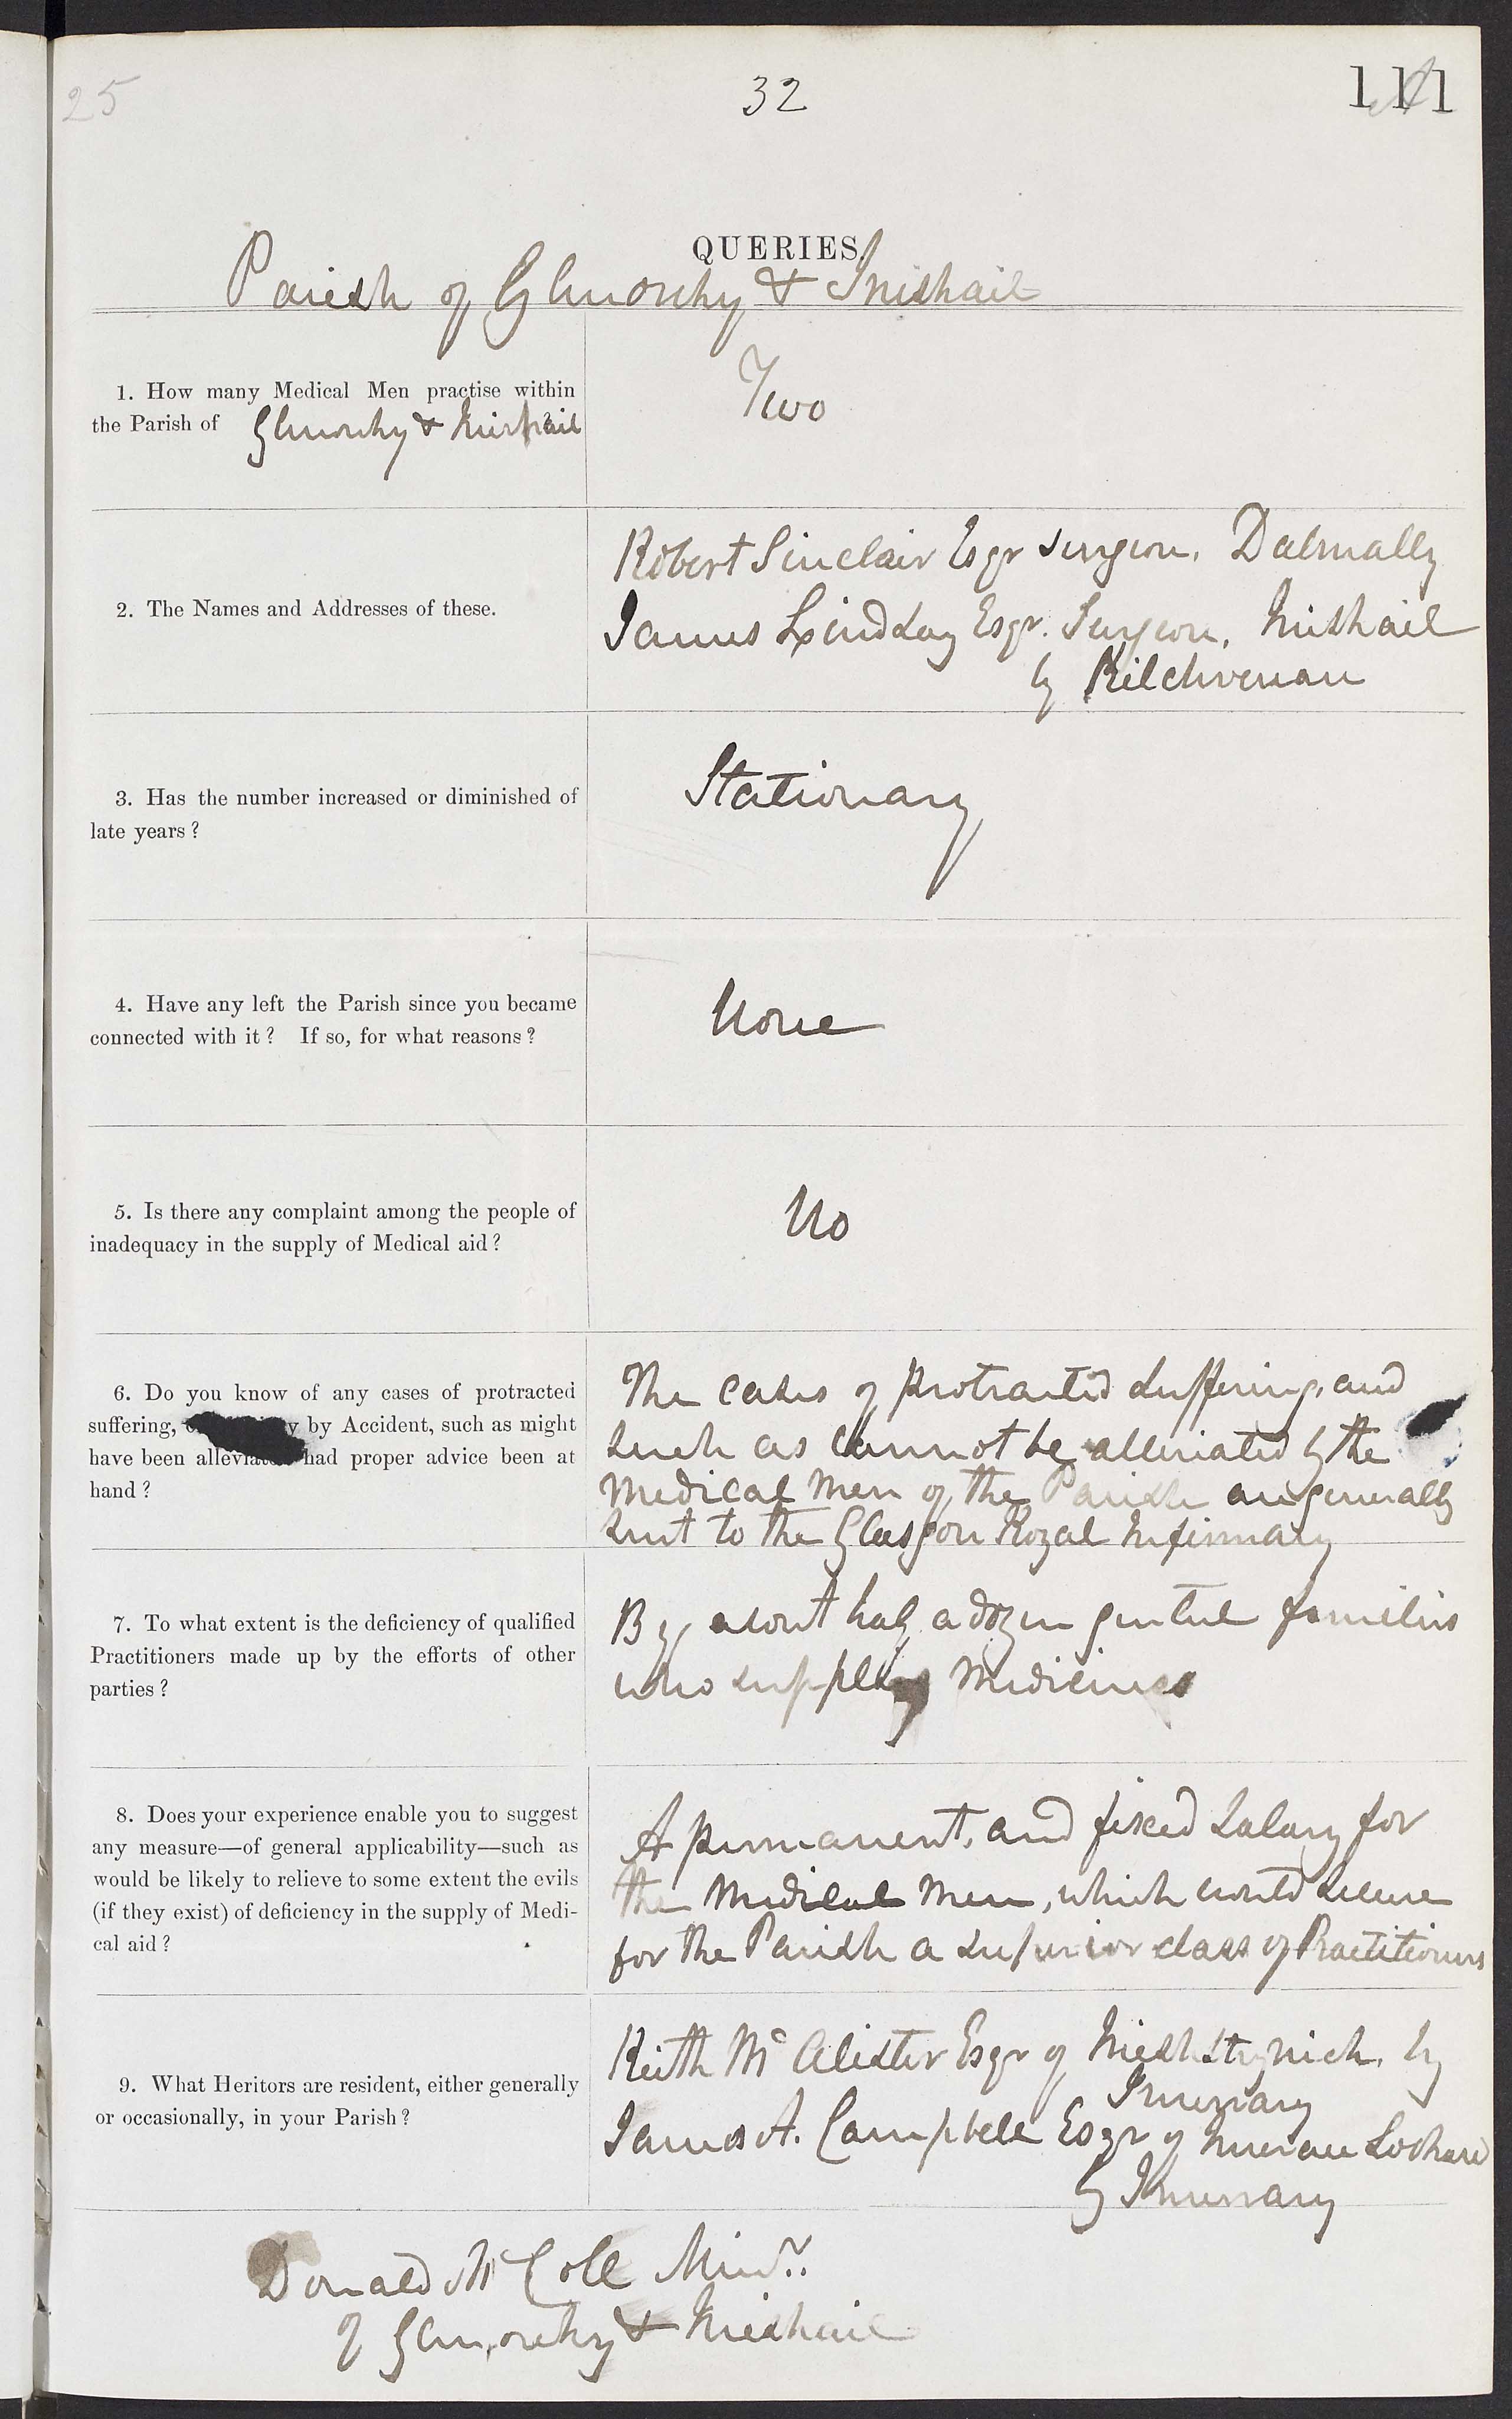 25
32
111
QUERIES.
Parish of Glenorchy & Inishail
1. How many Medical Men practise within
the Parish of Glenorchy & Inishail
Two
2. The Names and Addresses of these.
Robert Sinclair Esqr Surgeon. Dalmally
James Lindsay Esqr. Surgeon, Inishail
by Kilchrenan
3. Has the number increased or diminished of
late years?
Stationary
4. Have any left the Parish since you became
connected with it? If so, for what reasons?
None
5. Is there any complaint among the people of
inadequacy in the supply of Medical aid?
No
6. Do you know of any cases of protracted
suffering, by Accident, such as might
have been alleviated had proper advice been at
hand?
The cases of protracted suffering, and
such as cannot be alleviated by the
Medical Men of the Parish are generally
sent to the Glasgow Royal Infirmary
7. To what extent is the deficiency of qualified
Practitioners made up by the efforts of other
parties?
By about half a dozen genteel families
who supply Medicines
8. Does your experience enable you to suggest
any measure—of general applicability—such as
would be likely to relieve to some extent the evils
(if they exist) of deficiency in the supply of Medi-
cal aid?
A permanent, and fixed salary for
the Medical Men, which would secure
for the Parish a superior class of Practitioners
9. What Heritors are resident, either generally
or occasionally, in your Parish?
Keith Mc Alister Esqr of by
Inverary
James A. Campbell Esqr of
by Inverary
Donald McColl Minr.
of Glenorchy & Inishail